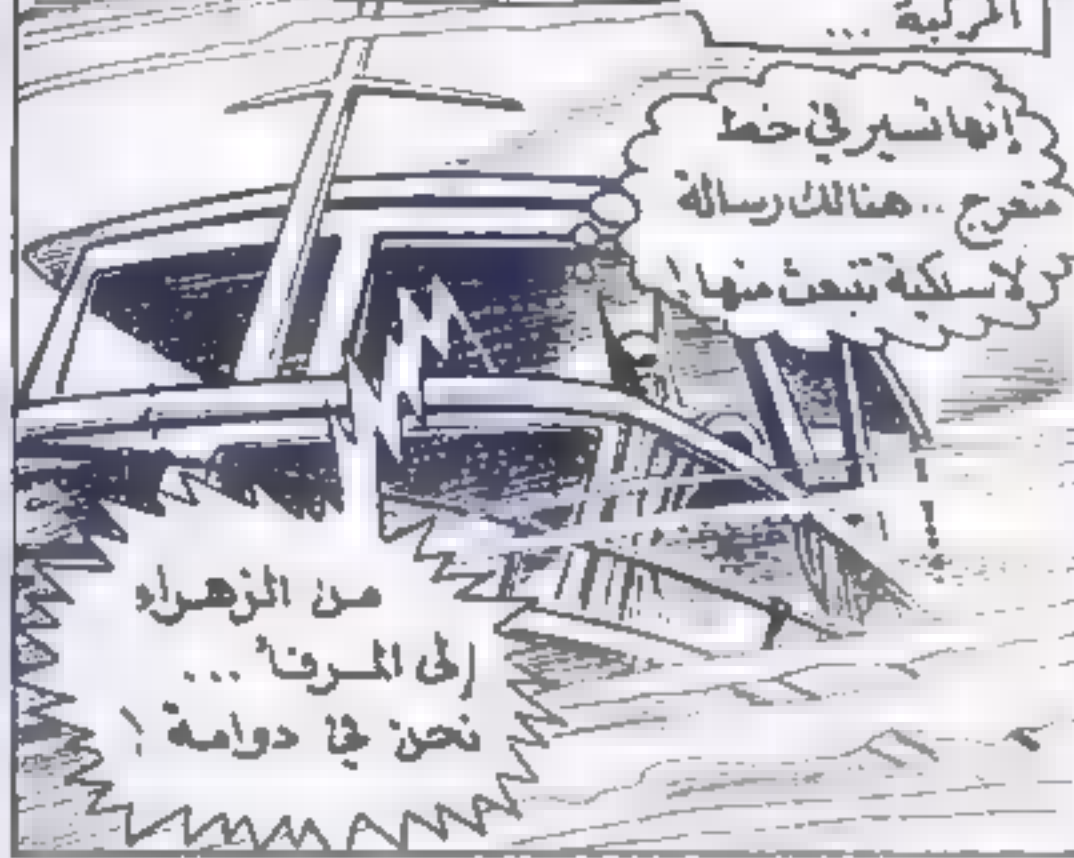 المركبة ...
إنها تسير في خط
متعرج .. هنالك رسالة
لاسلكية تنبعث منها !
من الزهراء
إلى المرفأ ...
نحن في دوامة !